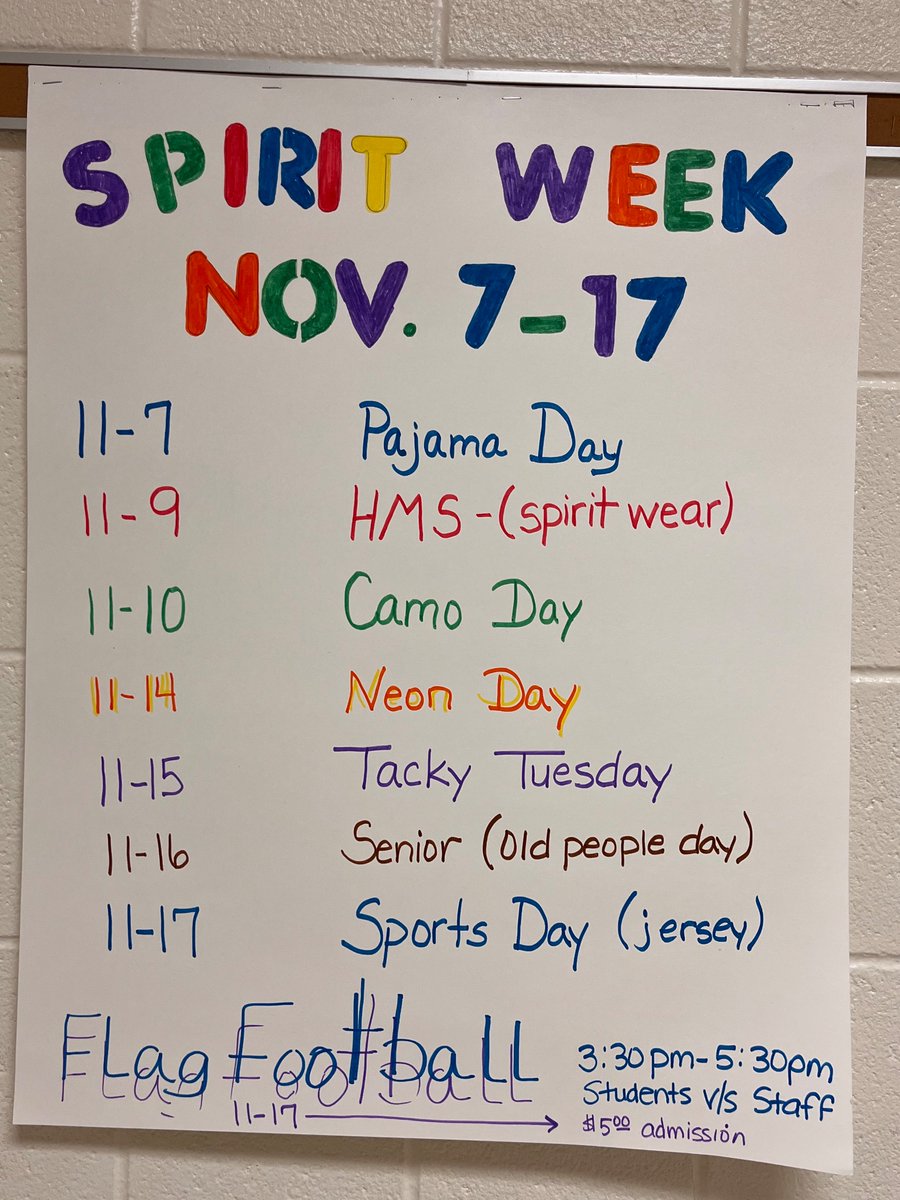 SPIRIT WEEK
NOV. 7-17
11-7 Pajama Day
11-9 HMS-(spirit wear)
11-10 Camo Day
11-14 Neon Day
11-15 Tacky Tuesday
11-16 Senior (old people day)
11-17 Sports Day (jersey)
Flag Football 3:30pm-5:30pm
Students v/s Staff
11-17 $5.00 admission